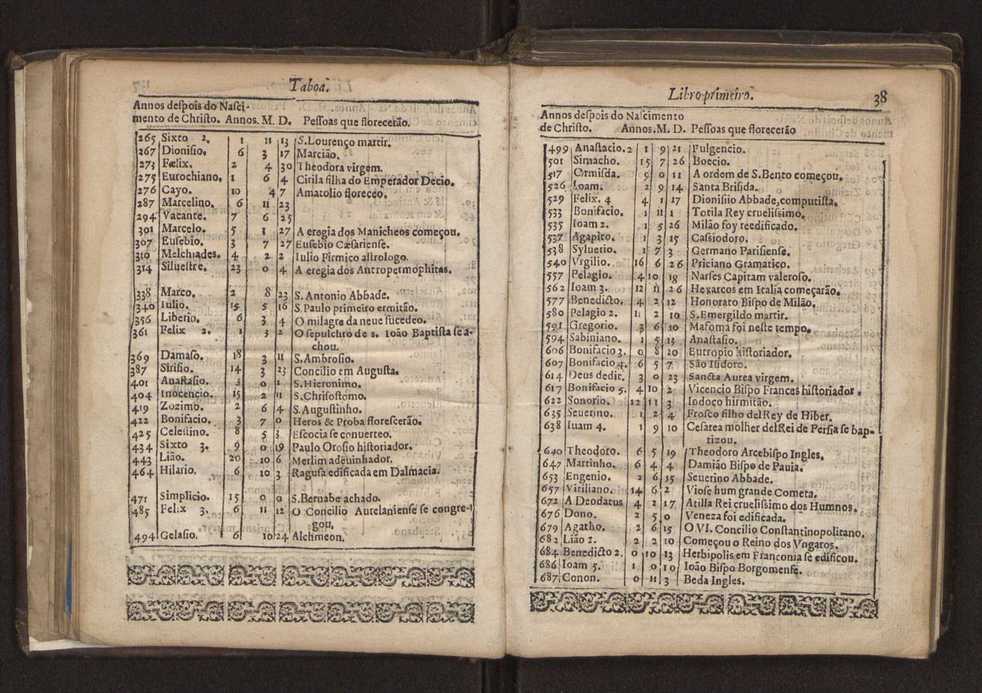 Taboa.
Annos despois do Nasci-
mento de Christo. Annos. M. D. Pessoas que florecerão.
265 Sixto 2. 1 11 13 S. Lourenço martir.
267 Dionisio. 6 3 17 Marcião.
273 Fælix. 2 4 30 Theodora virgem.
275 Eurochiano. 1 6 4 Cirila filha do Emperador Decio.
276 Cayo. 10 4 7 Amatolio floreceo.
287 Marcelino. 6 11 23
294 Vacante. 7 6 25
301 Marcelo. 5 1 27 A eregia dos Manicheos começou.
307 Eusebio. 3 7 27 Eusebio Cæsariense.
310 Melchiades. 4 2 2 Iulio Firmico astrologo.
314 Siluestre. 23 0 4 A eregia dos Antropermophitas.
338 Marco. 2 8 23 S. Antonio Abbade.
340 Iulio. 15 5 16 S. Paulo primeiro ermitão.
356 Liberio. 6 3 4 O milagre da neue sucedeo.
361 Felix 2. 1 3 2 O sepulchro de S. Ioão Baptista se a-
chou.
369 Damaso. 18 3 11 S. Ambrosio.
387 Sirisio. 14 3 23 Concilio em Augusta.
401 Anastasio. 3 0 1 S. Hieronimo.
404 Inocencio. 15 2 11 S. Chrisostomo.
419 Zozimo. 2 6 4 S. Augustinho.
422 Bonifacio. 3 7 0 Heros & Proba florescerão.
425 Celestino. 8 5 3 Escocia se conuerteo.
434 Sixto 3. 9 0 19 Paulo Orosio historiador.
443 Lião. 20 10 6 Merlim adeuinhador.
464 Hilario. 6 10 3 Ragusa edificada em Dalmacia.
471 Simplicio. 15 0 0 S. Bernabe achado.
485 Felix 3. 6 11 12 O Concilio Aurelaniense se congre-
gou.
494 Gelasio. 6 10 24 Alchimeon.
Libro primeiro. 38
Annos despois do Nascimento
de Christo. Annos. M. D. Pessoas que florecerão
499 Anastacio. 2 1 9 21 Fulgencio.
501 Simacho. 15 7 26 Boecio.
517 Ormisda. 9 0 11 A ordem de S. Bento começou.
526 Ioam. 2 9 14 Santa Brisida.
529 Felix. 4 4 1 17 Dionisiio Abbade, computista.
533 Bonifacio. 1 11 1 Totila Rey cruelissimo.
535 Ioam 2. 1 5 26 Milão foy reedificado.
537 Agapito. 1 3 15 Cassiodoro.
538 Syluerio. 1 7 3 Germano Parisiense.
540 Vrgilio. 16 6 26 Priciano Gramatico.
557 Pelagio. 4 10 18 Narses Capitam valeroso.
562 Ioam 3. 12 11 26 Hexarcos em Italia começarão.
577 Benedicto. 4 2 12 Honorato Bispo de Milão.
580 Pelagio 2. 11 2 10 S. Emergildo martir.
591 Gregorio. 3 6 10 Mafoma foi neste tempo.
594 Sabiniano. 1 5 13 Anastasio.
606 Bonifacio 3. 0 8 20 Eutropio historiador.
607 Bonifacio 4. 6 5 7 São Isidoro.
614 Deus dedit. 3 0 23 Sancta Aurea virgem.
617 Bonifacio 5. 4 10 2 Vicencio Bispo Frances historiador.
622 Sonorio. 12 11 3 Indoço hirmitão.
635 Seuerino. 1 2 4 Frosco filho del Rey de Hiber.
638 Iuam 4. 1 9 10 Cesarea molher del Rei de Persia se bap-
tizou.
640 Theodoro. 6 5 19 Theodoro Arcebispo Ingles.
647 Martinho. 6 4 4 Damião Bispo de Pauia.
653 Engenio. 2 6 15 Seuerino Abbade.
657 Viriliano. 14 6 2 Viose hum grande Cometa.
672 A Deodatus 4 2 17 Atilla Rei cruelissimo dos Humnos.
676 Dono. 2 5 0 Veneza foi edificada.
679 Agatho. 2 6 15 O VI. Concilio Constantinopolitano.
682 Lião 2. 2 2 10 Começou o Reino dos Vngaros.
684 Benedicto 2. 0 10 13 Herbipolis em Franconia se edificou.
686 Ioam 5. 1 0 10 Ioão Bispo Borgomense.
687 Conon. 0 11 3 Beda Ingles.